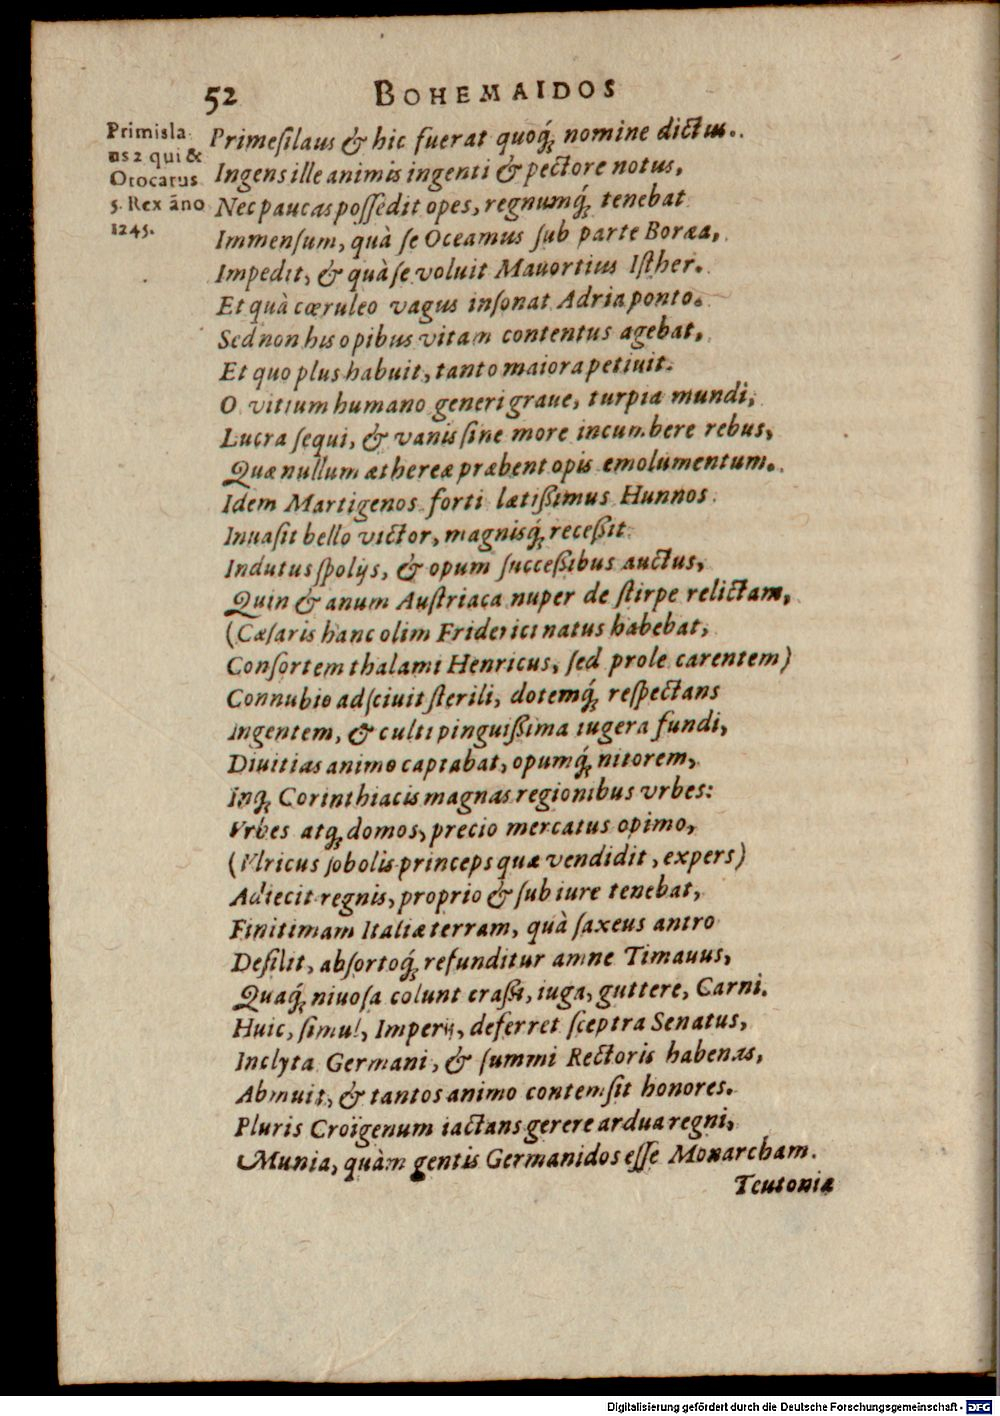 52 BOHEMAIDOS
Primisla
us 2 qui &
Otocarus
5. Rex āno
1245.
Primeſilaus & hic fuerat quoq́; nomine dictus.
Ingens ille animis ingenti & pectore notus,
Nec paucas poſſedit opes, regnumq́; tenebat
Immenſum, quà ſe Oceamus ſub parte Boræa,
Impedit, & quà ſe voluit Mauortius Iſther.
Et quà cœruleo vagus inſonat Adria ponto.
Sed non his opibus vitam contentus agebat,
Et quo plus habuit, tanto maiora petiuit.
O vitium humano generi graue, turpia mundi,
Lucra ſequi, & vanis ſine more incumbere rebus,
Quæ nullum æthereæ præbent opis emolumentum.
Idem Martigenos forti lætißimus Hunnos
Inuaſit bello victor, magnisq́; receßit
Indutus ſpolijs, & opum ſucceßibus auctus,
Quin & anum Auſtriaca nuper de ſtirpe relictam,
(Cæſaris hanc olim Friderici natus habebat,
Conſortem thalami Henricus, ſed prole carentem)
Connubio adſciuit ſterili, dotemq́; reſpectans
Ingentem, & culti pinguißima iugera fundi,
Diuitias animo captabat, opumq́; nitorem,
Inq; Corinthiacis magnas regionibus vrbes:
Vrbes atq; domos, precio mercatus opimo,
(Vlricus ſobolis princeps quæ vendidit, expers)
Adiecit regnis, proprio & ſub iure tenebat,
Finitimam Italiæ terram, quà ſaxeus antro
Deſilit, abſortoq́; refunditur amne Timauus,
Quaq́; niuoſa colunt craßi, iuga, guttere, Carni.
Huic, ſimul, Imperij, deferret ſceptra Senatus,
Inclyta Germani, & ſummi Rectoris habenas,
Abnuit, & tantos animo contemſit honores.
Pluris Croïgenum iactans gerere ardua regni,
Munia, quàm gentis Germanidos eſſe Monarcham.
Teutoniæ
Digitalisierung gefördert durch die Deutsche Forschungsgemeinschaft - DFG